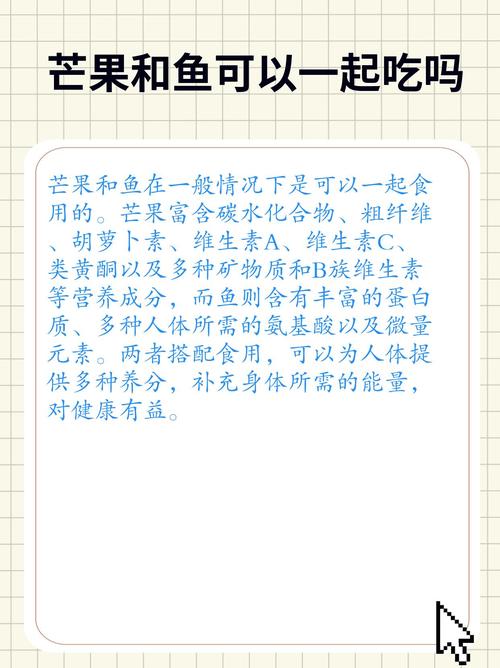 芒果和鱼可以一起吃吗
芒果和鱼在一般情况下是可以一起食
用的。芒果富含碳水化合物、粗纤维
、胡萝卜素、维生素A、维生素C、
类黄酮以及多种矿物质和B族维生素
等营养成分，而鱼则含有丰富的蛋白
质、多种人体所需的氨基酸以及微量
元素。两者搭配食用，可以为人体提
供多种养分，补充身体所需的能量，
对健康有益。